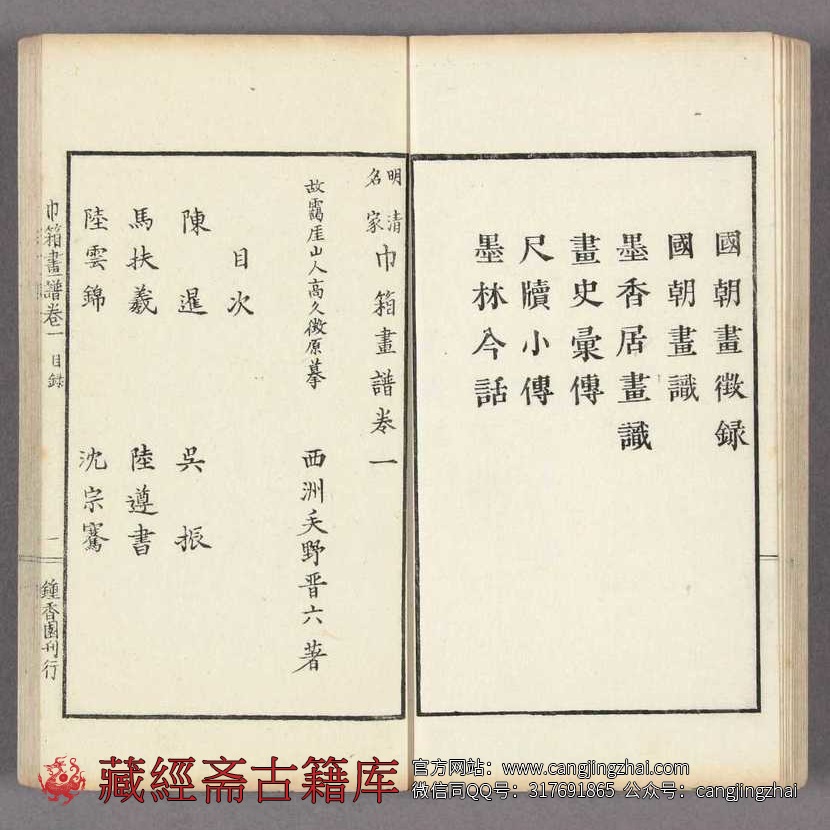 國朝畫徴録
國朝畫識
墨香居畫識
畫史彙傳
尺牘小傳
墨林今話
明清名家巾箱畫譜卷一
故靄厓山人高久徴原摹
西洲矢野晋六著
目次
陳暹
吳振
馬扶羲
陸遵書
陸雲錦
沈宗騫
巾箱畫譜卷一
目録
一
鍾香園刊行
藏經斋古籍库
官方网站：www.cangjingzhai.com
微信同QQ号：317691865 公众号：cangjingzhai